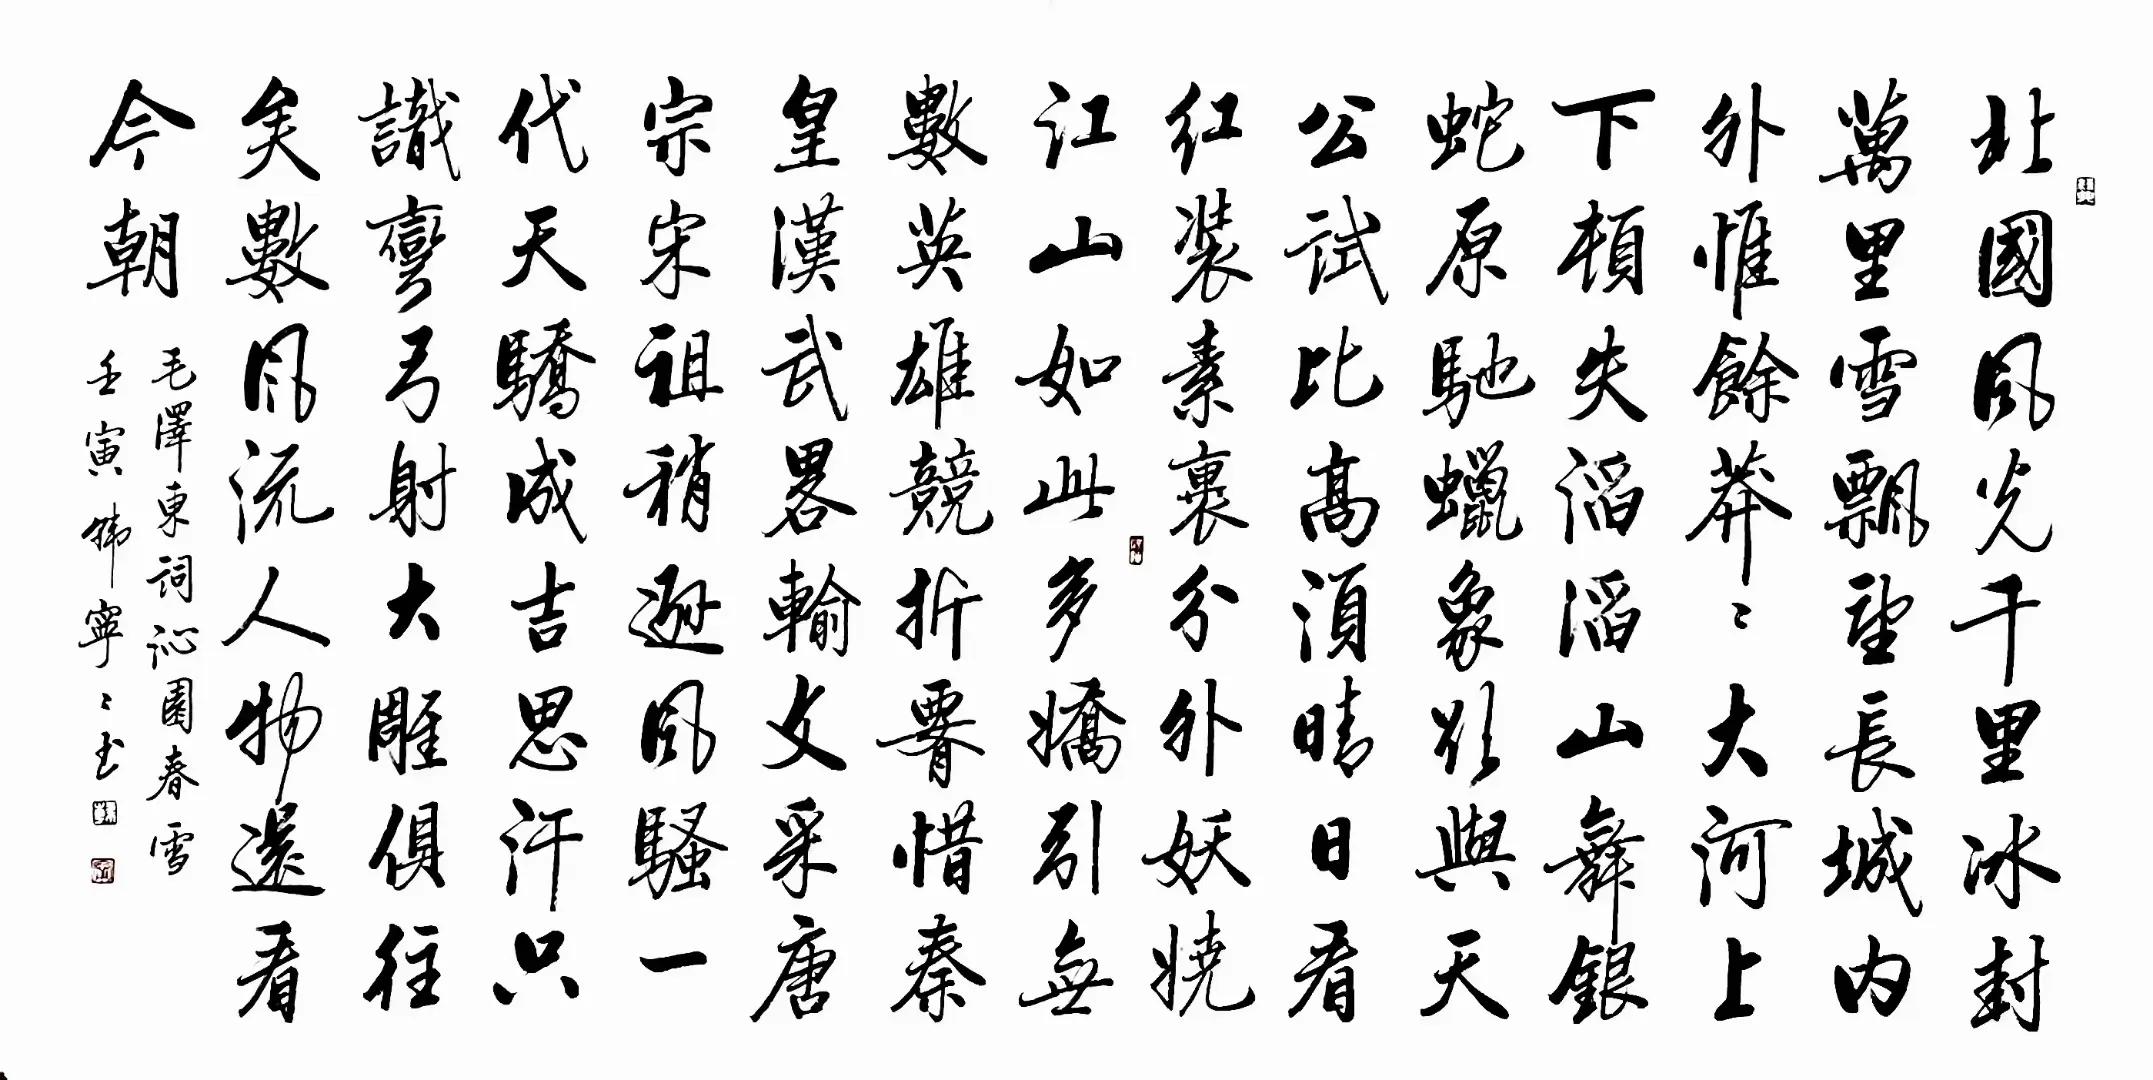 北國風光千里冰封
萬里雪飄望長城内
外惟餘莽〻大河上
下頓失滔滔山舞銀
蛇原馳蠟象欲與天
公試比高須晴日看
红装素裹分外妖娆
江山如此多嬌引無
數英雄競折腰惜秦
皇漢武畧輸文采唐
宗宋祖稍遜風騷一
代天驕成吉思汗只
識彎弓射大雕俱往
矣數風流人物還看
今朝
毛澤東詞沁園春雪
壬寅韩寧〻书